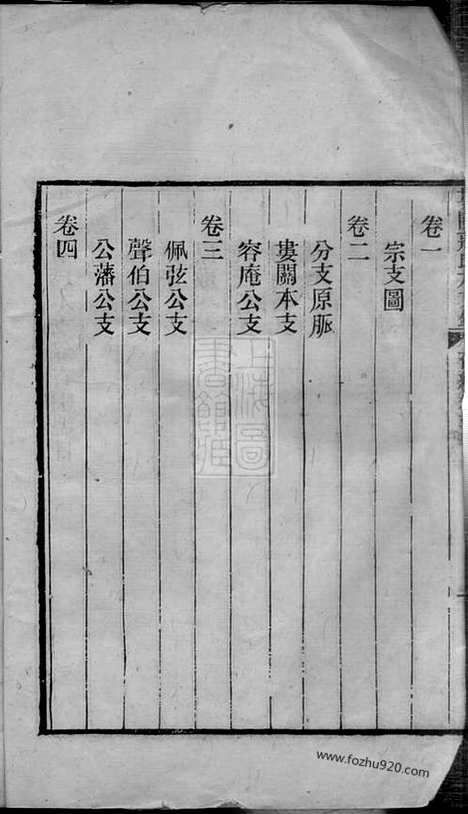 卷一
宗支圖
卷二
分支原脈
婁關本支
容庵公支
卷三
佩弦公支
聲伯公支
公藩公支
卷四
上海圖
書館藏
www.fozhu920.com